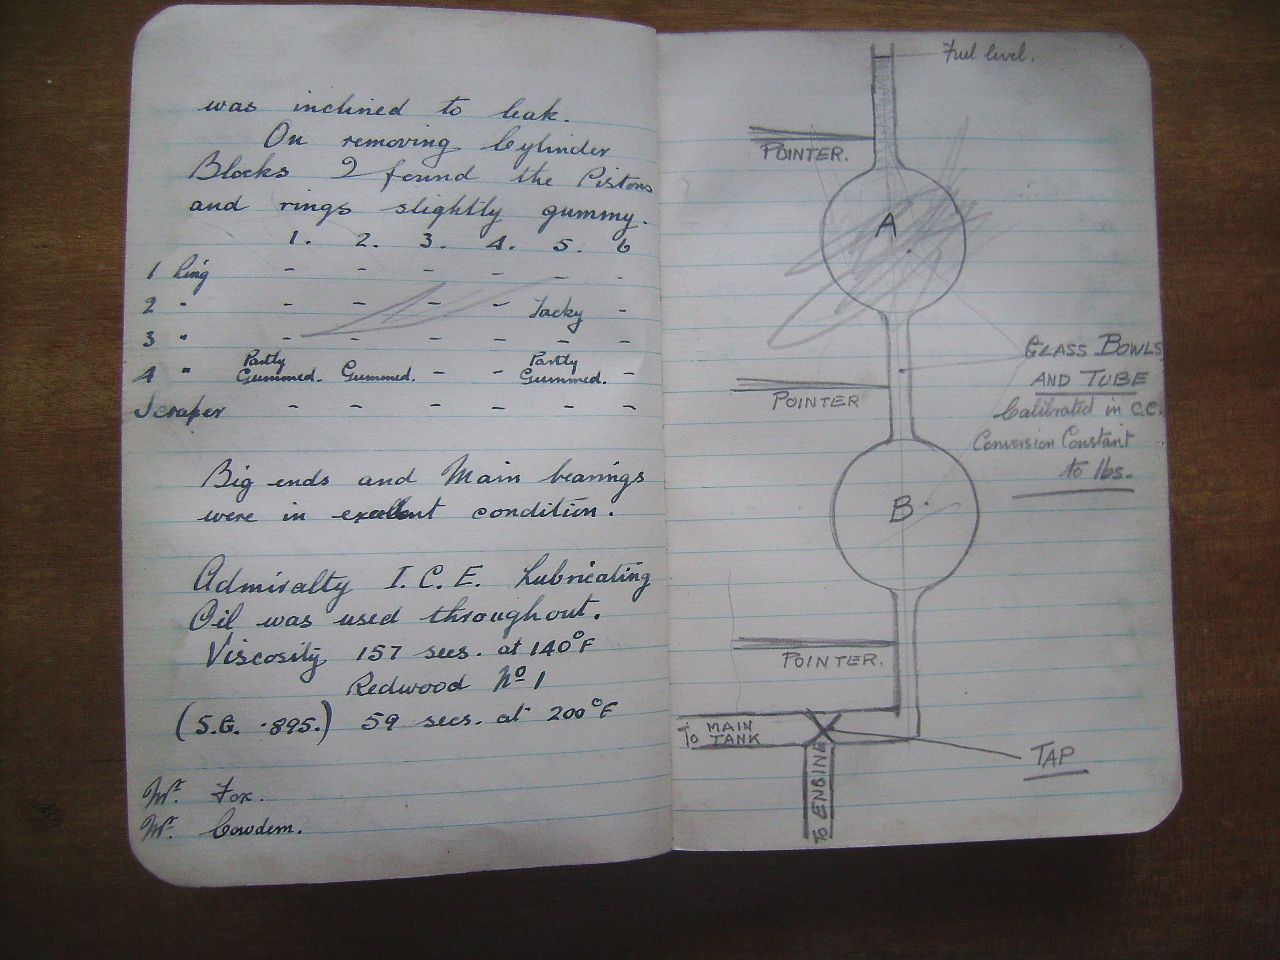 was inclined to leak.
On removing Cylinder
Blocks I found the Pistons
and rings slightly gummy.
1. 2. 3. 4. 5. 6
1 Ring - - - - - -
2 " - - - - Tacky -
3 " - - - - - -
4 " Partly Gummed. Gummed. - - Partly Gummed. -
Scraper - - - - - -
Big ends and Main bearings
were in excellent condition.
Admiralty I.C.E. Lubricating
Oil was used throughout.
Viscosity 157 secs. at 140°F
Redwood No 1
(S.G. .895.) 59 secs. at 200°F
Mr. Fox.
Mr. Cowdem.
Fuel level.
POINTER.
A
GLASS BOWLS
AND TUBE
Calibrated in C.C.
Conversion Constant
to lbs.
POINTER
B
POINTER.
TO MAIN
TANK
TAP
TO ENGINE